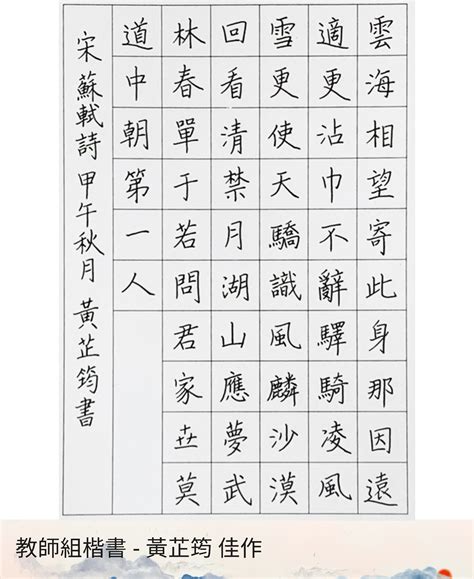 雲海相望寄此身那因遠
適更沾巾不辭驛騎凌風
雪更使天驕識風麟沙漠
回看清禁月湖山應夢武
林春單于若問君家世莫
道中朝第一人
宋蘇軾詩 甲午秋月 黃芷筠書
教師組楷書 - 黃芷筠 佳作